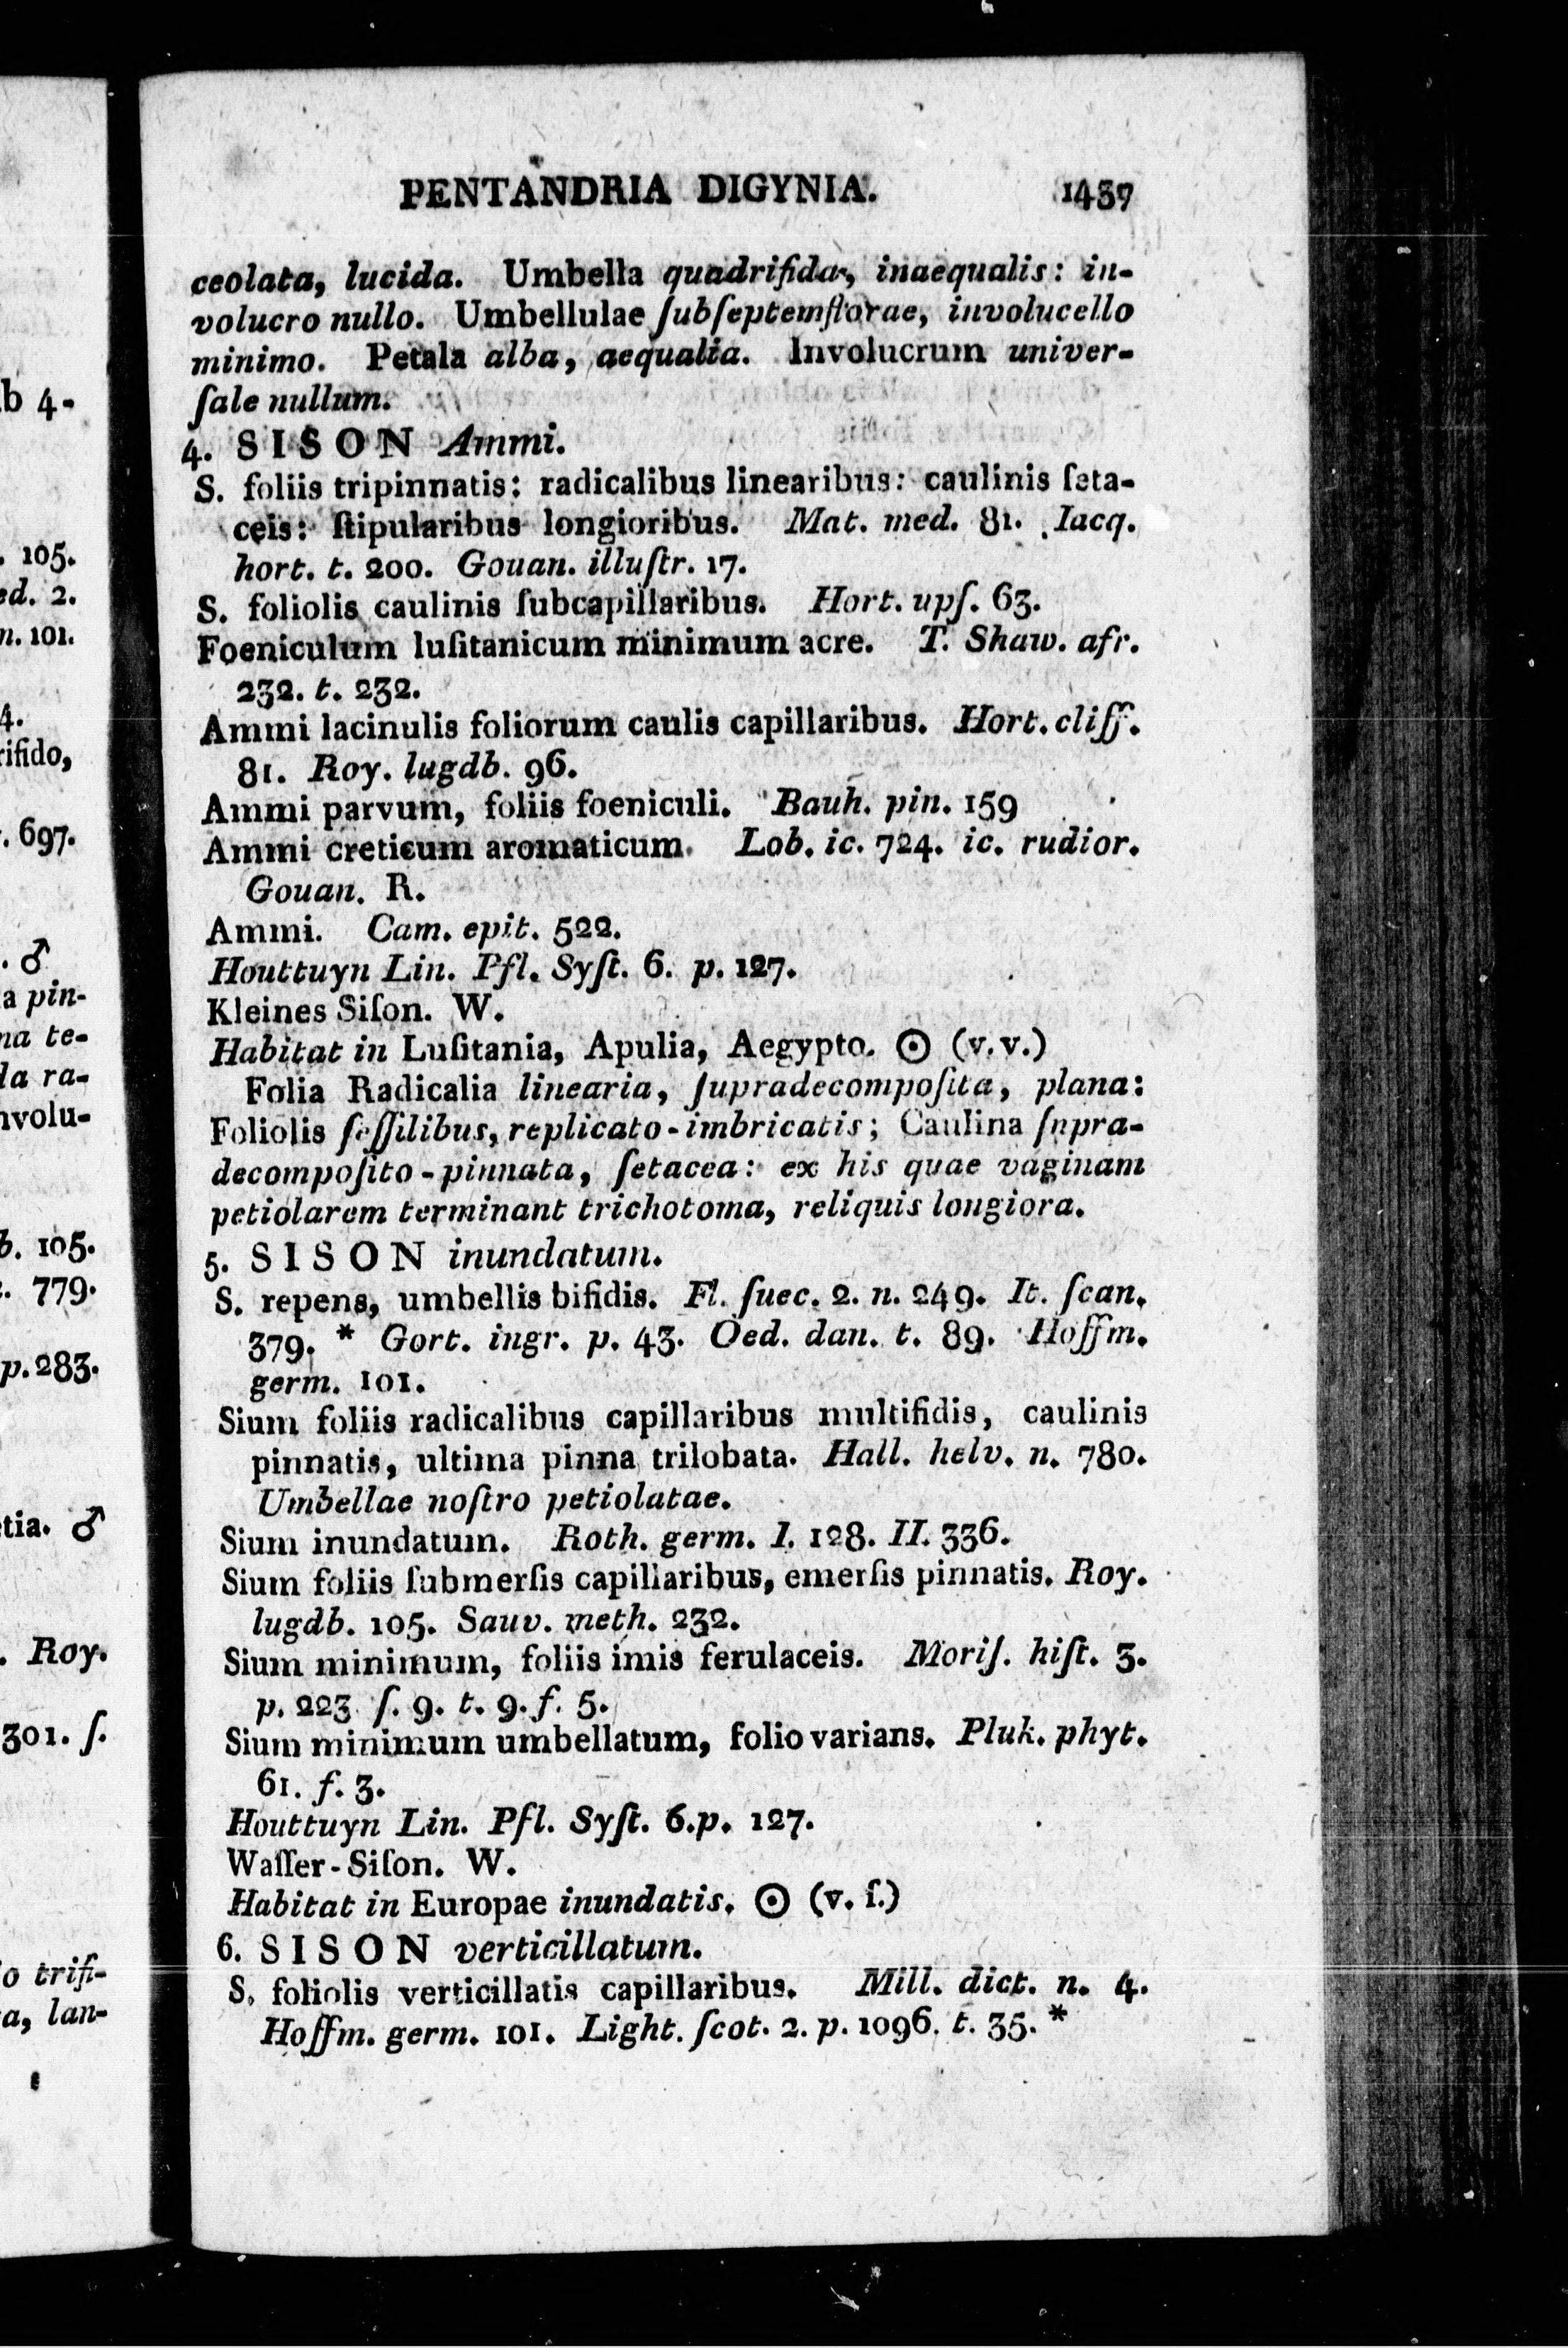 PENTANDRIA DIGYNIA. 1437
ceolata, lucida. Umbella quadrifida, inaequalis: in-
volucro nullo. Umbellulae ſubſeptemflorae, involucello
minimo. Petala alba, aequalia. Involucrum univer-
ſale nullum.
4. SISON Ammi.
S. foliis tripinnatis: radicalibus linearibus: caulinis ſeta-
ceis: ſtipularibus longioribus. Mat. med. 81. Iacq.
hort. t. 200. Gouan. illuſtr. 17.
S. foliolis caulinis ſubcapillaribus. Hort. upſ. 63.
Foeniculum luſitanicum minimum acre. T. Shaw. afr.
232. t. 232.
Ammi lacinulis foliorum caulis capillaribus. Hort. cliff.
81. Roy. lugdb. 96.
Ammi parvum, foliis foeniculi. Bauh. pin. 159
Ammi creticum aromaticum. Lob. ic. 724. ic. rudior.
Gouan. R.
Ammi. Cam. epit. 522.
Houttuyn Lin. Pfl. Syſt. 6. p. 127.
Kleines Siſon. W.
Habitat in Luſitania, Apulia, Aegypto. ☉ (v. v.)
Folia Radicalia linearia, ſupradecompoſita, plana:
Foliolis ſeſſilibus, replicato-imbricatis; Caulina ſupra-
decompoſito-pinnata, ſetacea: ex his quae vaginam
petiolarem terminant trichotoma, reliquis longiora.
5. SISON inundatum.
S. repens, umbellis bifidis. Fl. ſuec. 2. n. 249. It. ſcan.
379. * Gort. ingr. p. 43. Oed. dan. t. 89. Hoffm.
germ. 101.
Sium foliis radicalibus capillaribus multifidis, caulinis
pinnatis, ultima pinna trilobata. Hall. helv. n. 780.
Umbellae noſtro petiolatae.
Sium inundatum. Roth. germ. I. 128. II. 336.
Sium foliis ſubmerſis capillaribus, emerſis pinnatis. Roy.
lugdb. 105. Sauv. meth. 232.
Sium minimum, foliis imis ferulaceis. Moriſ. hiſt. 3.
p. 223 ſ. 9. t. 9. f. 5.
Sium minimum umbellatum, folio varians. Pluk. phyt.
61. f. 3.
Houttuyn Lin. Pfl. Syſt. 6. p. 127.
Waſſer-Siſon. W.
Habitat in Europae inundatis. ☉ (v. ſ.)
6. SISON verticillatum.
S. foliolis verticillatis capillaribus. Mill. dict. n. 4.
Hoffm. germ. 101. Light. ſcot. 2. p. 1096. t. 35. *